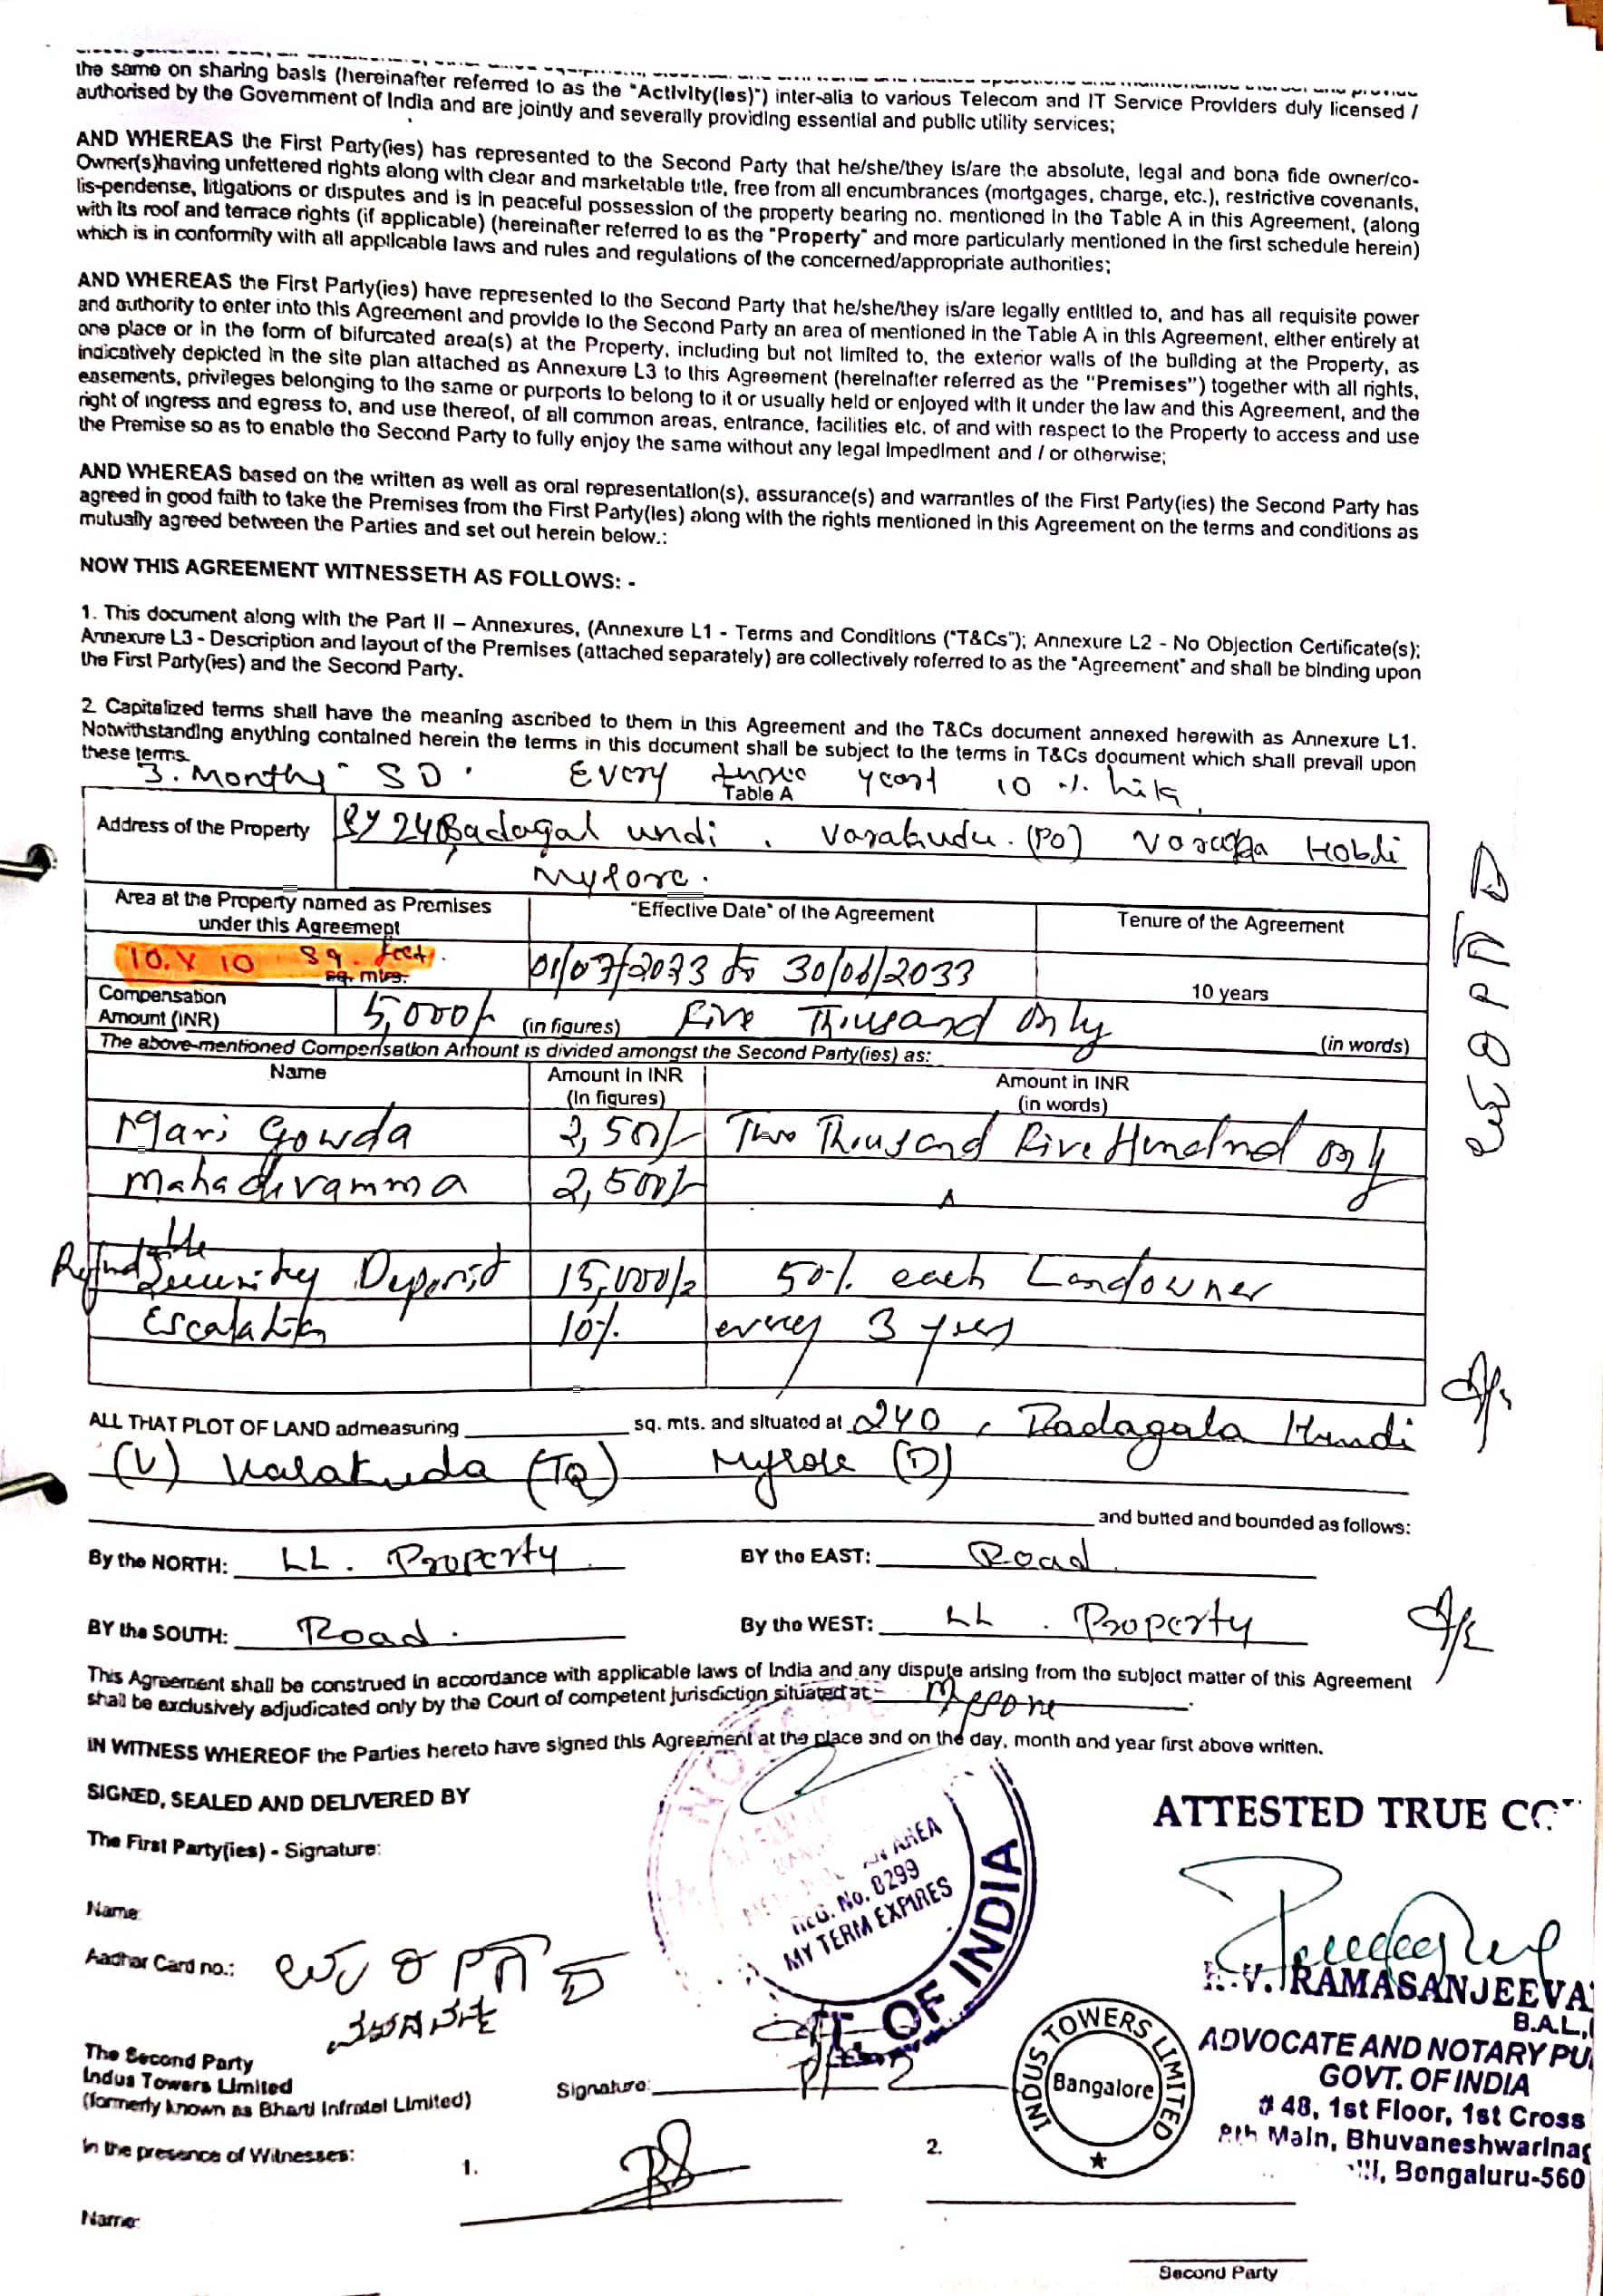 the same on sharing basis (hereinafter referred to as the "Activity(ies)") inter-alia to various Telecom and IT Service Providers duly licensed /
authorised by the Government of India and are jointly and severally providing essential and public utility services;
AND WHEREAS the First Party(ies) has represented to the Second Party that he/she/they is/are the absolute, legal and bona fide owner/co-
Owner(s)having unfettered rights along with clear and marketable title, free from all encumbrances (mortgages, charge, etc.), restrictive covenants,
lis-pendense, litigations or disputes and is in peaceful possession of the property bearing no. mentioned in the Table A in this Agreement, (along
with its roof and terrace rights (if applicable) (hereinafter referred to as the "Property" and more particularly mentioned in the first schedule herein)
which is in conformity with all applicable laws and rules and regulations of the concerned/appropriate authorities;
AND WHEREAS the First Party(ies) have represented to the Second Party that he/she/they is/are legally entitled to, and has all requisite power
and authority to enter into this Agreement and provide to the Second Party an area of mentioned in the Table A in this Agreement, either entirely at
one place or in the form of bifurcated area(s) at the Property, including but not limited to, the exterior walls of the building at the Property, as
indicatively depicted in the site plan attached as Annexure L3 to this Agreement (hereinafter referred as the "Premises") together with all rights,
easements, privileges belonging to the same or purports to belong to it or usually held or enjoyed with it under the law and this Agreement, and the
right of ingress and egress to, and use thereof, of all common areas, entrance, facilities etc. of and with respect to the Property to access and use
the Premise so as to enable the Second Party to fully enjoy the same without any legal impediment and / or otherwise;
AND WHEREAS based on the written as well as oral representation(s), assurance(s) and warranties of the First Party(ies) the Second Party has
agreed in good faith to take the Premises from the First Party(ies) along with the rights mentioned in this Agreement on the terms and conditions as
mutually agreed between the Parties and set out herein below.:
NOW THIS AGREEMENT WITNESSETH AS FOLLOWS: -
1. This document along with the Part II – Annexures, (Annexure L1 - Terms and Conditions ("T&Cs"); Annexure L2 - No Objection Certificate(s);
Annexure L3 - Description and layout of the Premises (attached separately) are collectively referred to as the "Agreement" and shall be binding upon
the First Party(ies) and the Second Party.
2. Capitalized terms shall have the meaning ascribed to them in this Agreement and the T&Cs document annexed herewith as Annexure L1.
Notwithstanding anything contained herein the terms in this document shall be subject to the terms in T&Cs document which shall prevail upon
these terms.
3. Months SD. Every three year 10 % hik
Table A
Address of the Property Sy 240 Badagal undi, Varakudu. (PO) Varuna Hobli
Mysore.
Area at the Property named as Premises under this Agreement "Effective Date" of the Agreement Tenure of the Agreement
10 x 10 sq. feet. sq. mts. 01/07/2023 to 30/06/2033 10 years
Compensation Amount (INR) 5,000/- (in figures) Five Thousand Only (in words)
The above-mentioned Compensation Amount is divided amongst the Second Party(ies) as:
Name Amount in INR (In figures) Amount in INR (in words)
Mari Gowda 2,500/- Two Thousand Five Hundred Only
Mahadevamma 2,500/-
Refundable Security Deposit 15,000/- 50% each Landowner
Escalation 10% every 3 years
ALL THAT PLOT OF LAND admeasuring sq. mts. and situated at 240, Badagala Hundi
(V) Varakuda (TQ) Mysore (D)
and butted and bounded as follows:
By the NORTH: LL. Property BY the EAST: Road
BY the SOUTH: Road. By the WEST: LL. Property
This Agreement shall be construed in accordance with applicable laws of India and any dispute arising from the subject matter of this Agreement
shall be exclusively adjudicated only by the Court of competent jurisdiction situated at Mysore
IN WITNESS WHEREOF the Parties hereto have signed this Agreement at the place and on the day, month and year first above written.
SIGNED, SEALED AND DELIVERED BY
ATTESTED TRUE
The First Party(ies) - Signature:
AREA
REG. No. 8299
MY TERM EXPIRES
OF INDIA
Name:
Aadhar Card no.:
V. RAMASANJEEVA
B.A.L.,
ADVOCATE AND NOTARY PU
GOVT. OF INDIA
# 48, 1st Floor, 1st Cross
8th Main, Bhuvaneshwarinag
Bengaluru-560
The Second Party
Indus Towers Limited
(formerly known as Bharti Infratel Limited)
Signature:
INDUS TOWERS LIMITED
Bangalore
In the presence of Witnesses:
1.
2.
Name:
Second Party